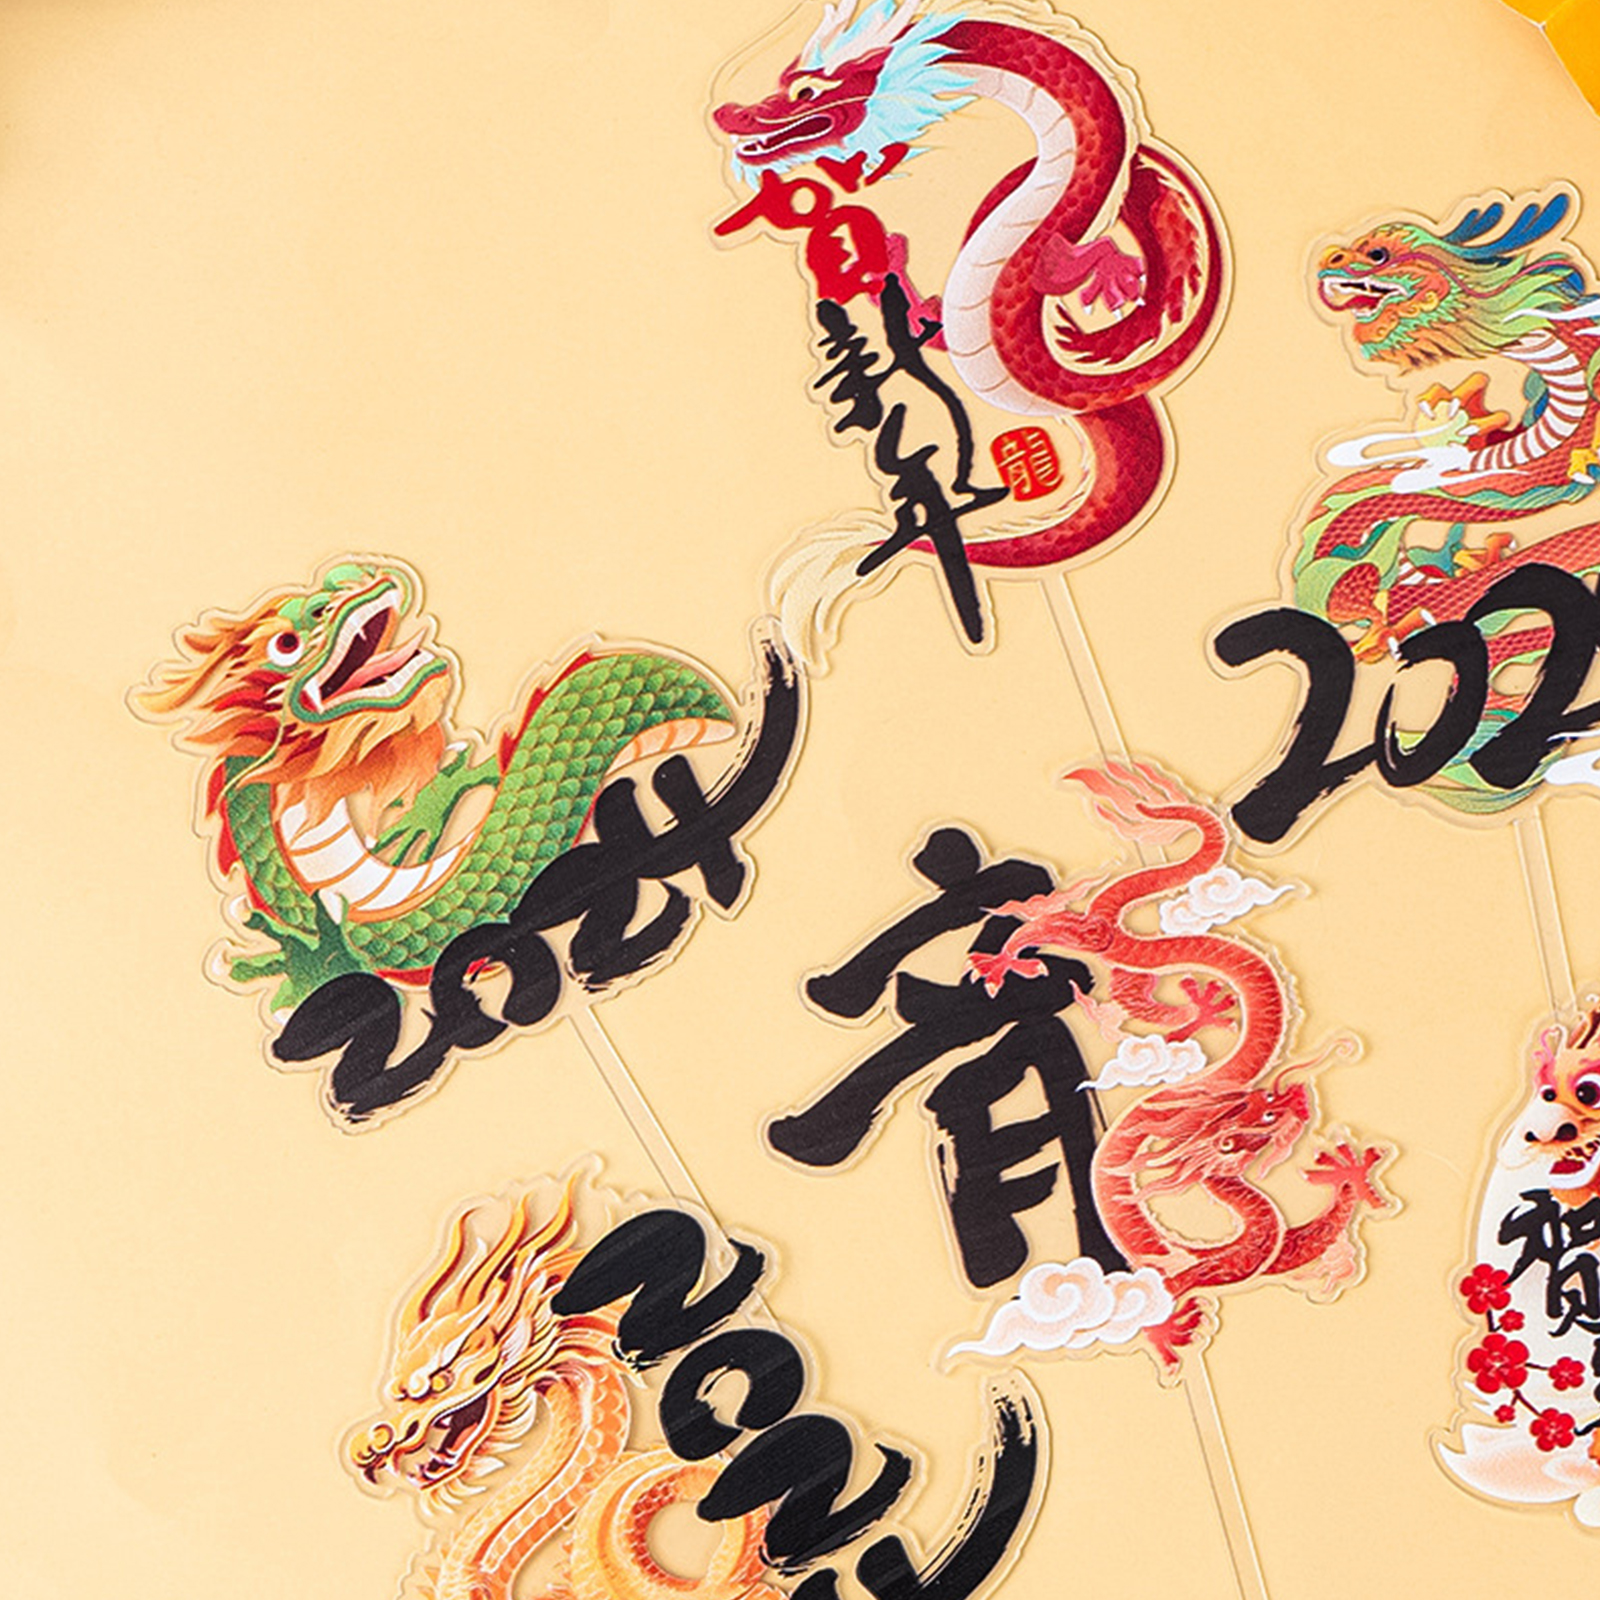 賀
新
年
龍
202
2024
龍
2024
賀